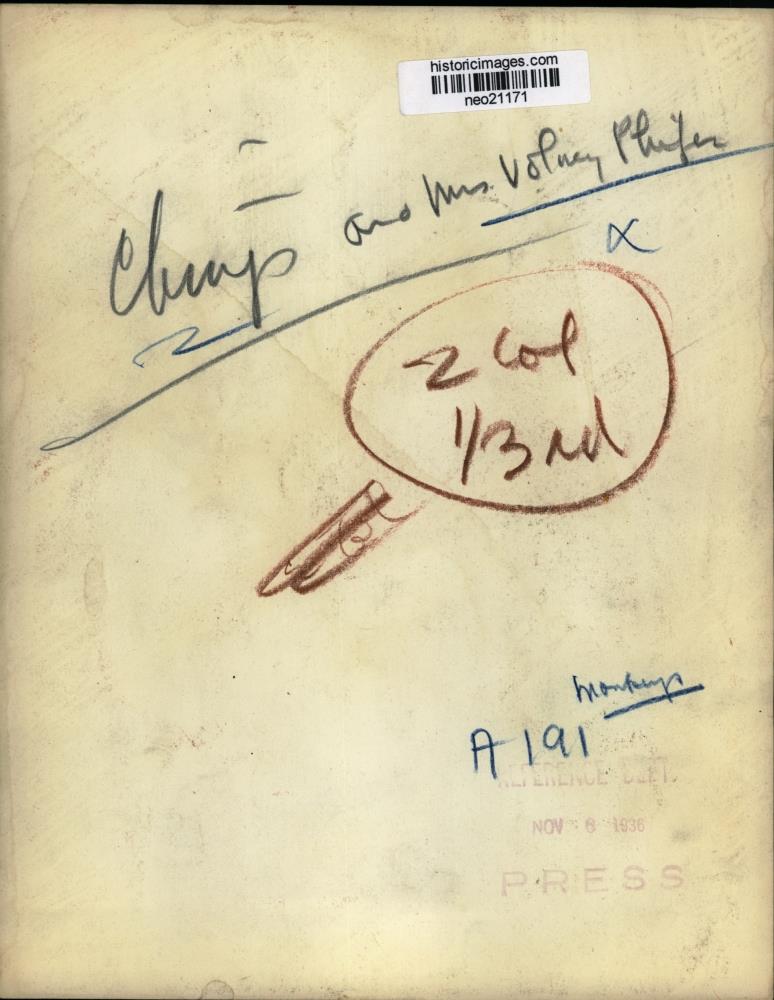 historicimages.com
neo21171
Chimp and Mrs. Volney Phifer
X
2 Col
1/3 rd
Col
Monkeys
A191
REFERENCE DEPT.
NOV 6 1936
PRESS